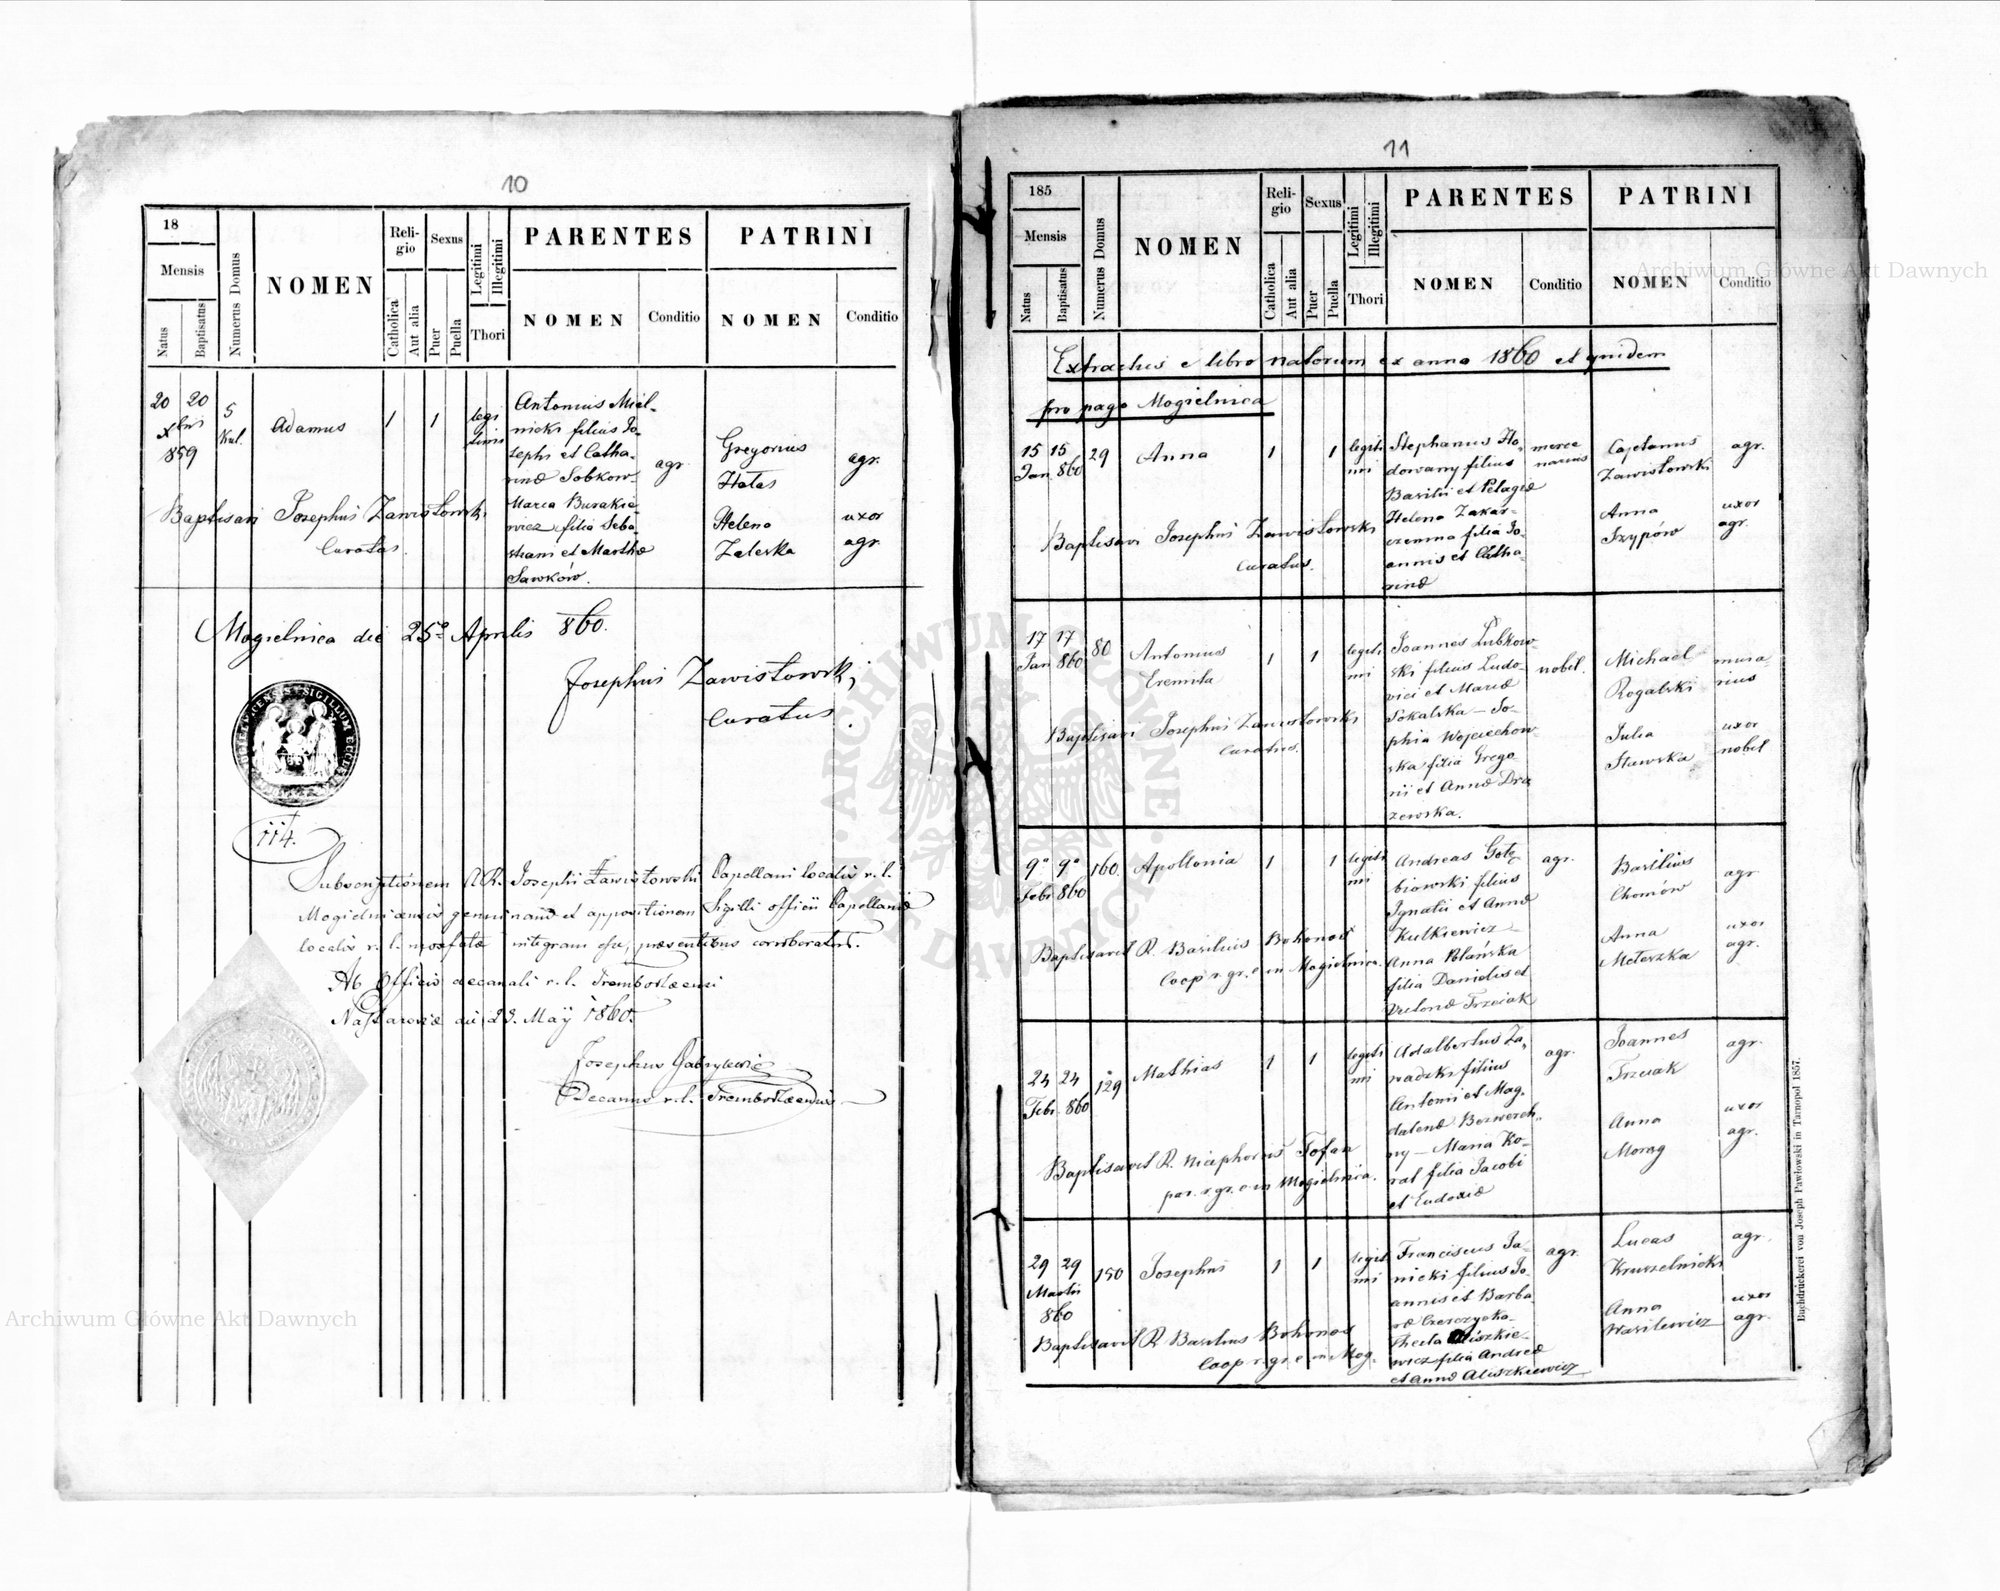 10
18
Mensis
Natus
Baptisatus
Numerus Domus
NOMEN
Reli-
gio
Catholica
Aut alia
Sexus
Puer
Puella
Legitimi
Illegitimi
Thori
PARENTES
NOMEN
Conditio
PATRINI
NOMEN
Conditio
20 20
xbris
859
5
Kul.
Adamus
1
1
legi
timi
Antonius Miel-
nicki filius Jo-
sephi et Catha-
rinæ Sobkow-
Maria Burakie-
wicz filia Seba-
stiani et Marthæ
Sawków.
agr.
Gregorius
Hałas
agr.
Helena
Zaleska
uxor
agr.
Baptisavi Josephus Zawistowski
Curatus.
Mogielnica die 25º Aprilis 860.
Josephus Zawistowski
Curatus.
114.
Subscriptionem A.R. Josephi Zawistowski Capellani localis r. l.
Mogielnicensis genuinam et appositionem Sigilli officii Capellaniæ
localis r. l. præfatæ integram esse, præsentibus corroboratur.
Ab Officio decanali r. l. Trembowlaensi
die 23. Maÿ 1860.
Josephus
Decanus r. l. Trembowlaensis
11
185
Mensis
Natus
Baptisatus
Numerus Domus
NOMEN
Reli-
gio
Catholica
Aut alia
Sexus
Puer
Puella
Legitimi
Illegitimi
Thori
PARENTES
NOMEN
Conditio
PATRINI
NOMEN
Conditio
Extractus e libro natorum ex anno 1860 et quidem
pro pago Mogielnica
15 15
Jan. 860
29
Anna
1
1
legiti
mi
Stephanus Ho-
dowany filius
Basilii et Pelagiæ
Helena Zakar-
czemna filia Jo-
annis et Catha-
rinæ
merce
narius
Cajetanus
Zawistowski
agr.
Anna
Trypów
uxor
agr.
Baptisavi Josephus Zawistowski
Curatus.
17 17
Jan 860
80
Antonius
Eremita
1
1
legiti
mi
Joannes Łubkow-
ski filius Ludo-
vici et Mariæ
Sokalska - So-
phia Wojciechow-
ska filia Grego-
rii et Annæ Dra
żewska.
nobil.
Michael
Rogalski
mura-
rius
Julia
Sławska
uxor
nobil
Baptisavi Josephus Zawistowski
Curatus.
9º 9º
Febr. 860
160.
Apollonia
1
1
legiti
mi
Andreas Gołę-
biowski filius
Ignatii et Annæ
Kulkiewicz -
Anna Polańska
filia Danielis et
Trzeciak
agr.
Basilius
Chomów
agr
Anna
Meleszka
uxor
agr.
Baptisavit R. Basilius Bohonos
Coop r. gr. c. in Mogielnica.
24 24
Febr. 860
129
Mathias
1
1
legiti
mi
Adalbertus Za-
wadzki filius
Antonii et Mag-
dalenæ Bezwerch-
ny - Maria Ko-
wal filia Jacobi
et Eudoxiæ
agr.
Joannes
Trzeciak
agr.
Anna
Moroz
uxor
agr.
Baptisavit R. Nicephorus Tofan
par. r. gr. c. in Mogielnica.
29 29
Martii
860
150
Josephus
1
1
legiti
mi
Franciscus Ja-
nicki filius Jo-
annis et Barba-
ræ Czerczycka-
Thecla Aliszkie-
wicz filia Andreæ
et Annæ Aliszkiewicz
agr.
Lucas
Kruszelnicki
agr.
Anna
Wasilewicz
uxor
agr.
Baptisavit R. Basilius Bohonos
Coop r. gr. c. in Mog.
Buchdruckerei von Joseph Pawłowski in Tarnopol 1857.
Archiwum Główne Akt Dawnych
Archiwum Główne Akt Dawnych
ARCHIWUM GŁÓWNE AKT DAWNYCH